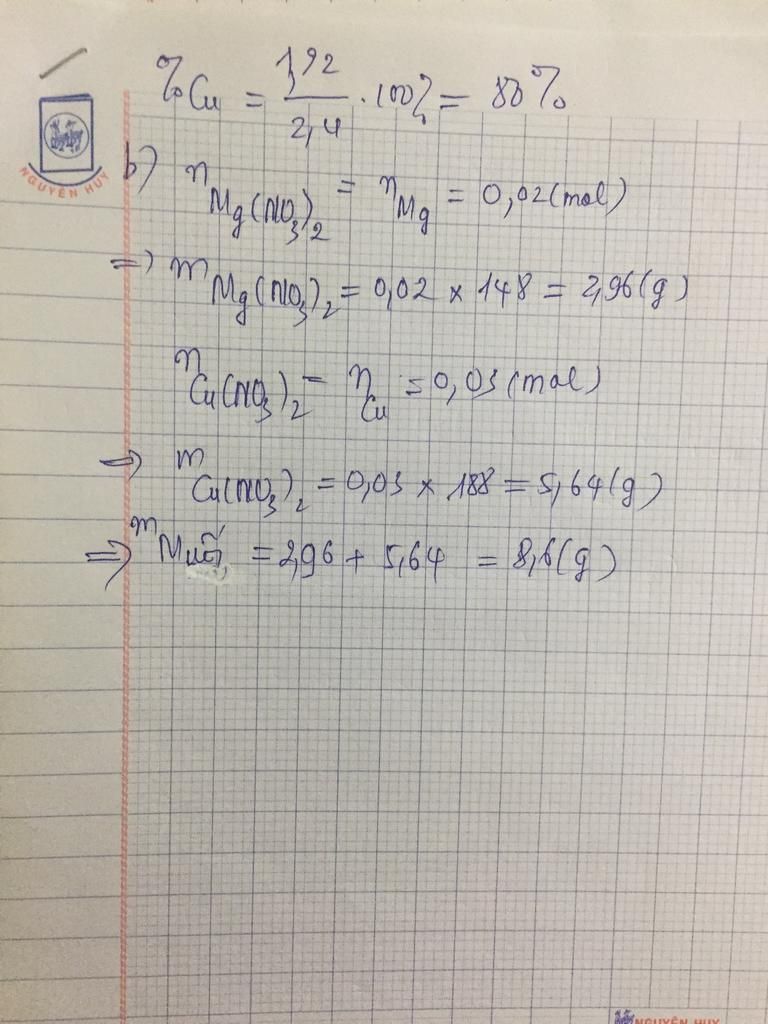 %Cu = 1,92/2,4 .100% = 80%
NGUYÊN HUY
b) nMg(NO3)2 = nMg = 0,02(mol)
=> mMg(NO3)2 = 0,02 × 148 = 2,96(g)
nCu(NO3)2 = nCu = 0,03(mol)
=> mCu(NO3)2 = 0,03 × 188 = 5,64(g)
=> mMuối = 2,96 + 5,64 = 8,6(g)
NGUYÊN HUY